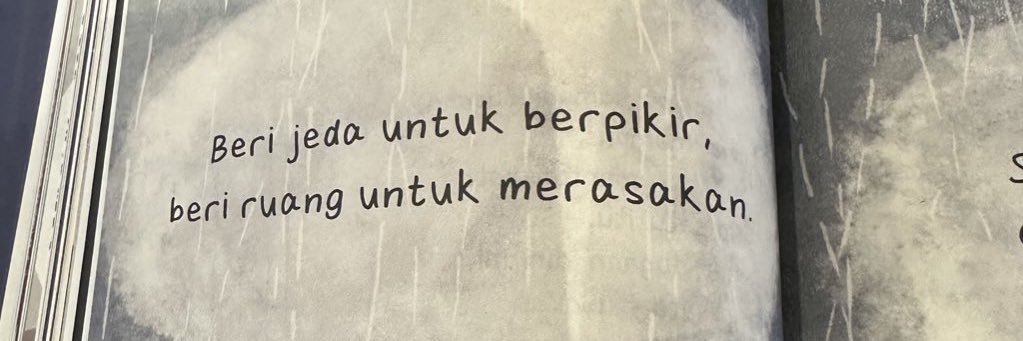 Beri jeda untuk berpikir,
beri ruang untuk merasakan.